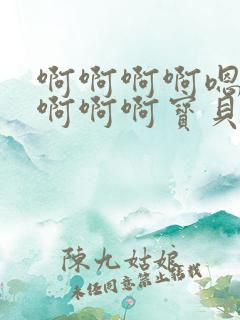 啊啊啊啊嗯
啊啊啊寶貝
陳九姑娘
未经同意禁止转载